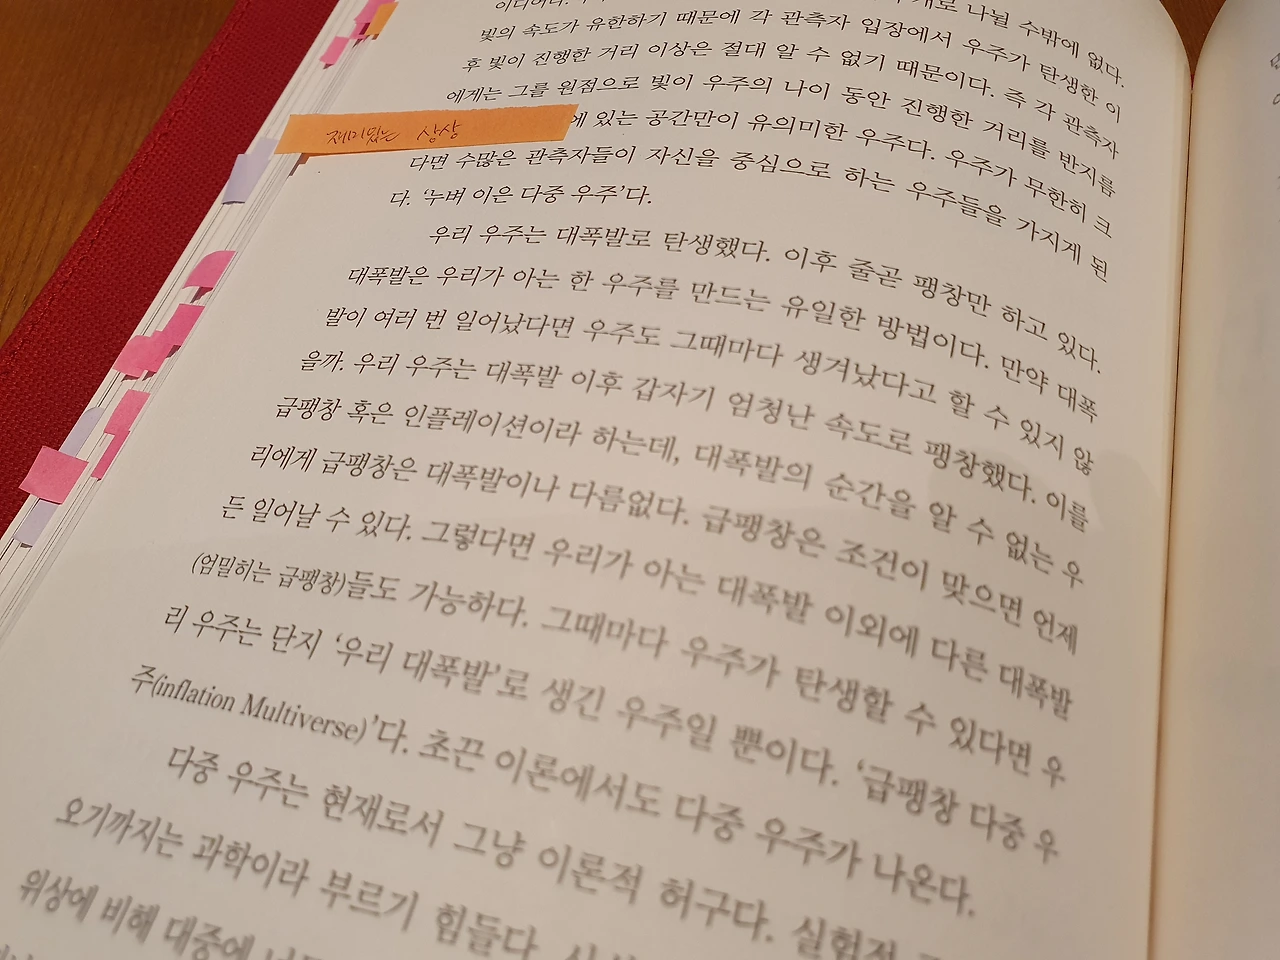 개로 나뉠 수밖에 없다.
빛의 속도가 유한하기 때문에 각 관측자 입장에서 우주가 탄생한 이
후 빛이 진행한 거리 이상은 절대 알 수 없기 때문이다. 즉 각 관측자
에게는 그를 원점으로 빛이 우주의 나이 동안 진행한 거리를 반지름
재미있는 상상
에 있는 공간만이 유의미한 우주다. 우주가 무한히 크
다면 수많은 관측자들이 자신을 중심으로 하는 우주들을 가지게 된
다. ‘누벼 이은 다중 우주’다.
우리 우주는 대폭발로 탄생했다. 이후 줄곧 팽창만 하고 있다.
대폭발은 우리가 아는 한 우주를 만드는 유일한 방법이다. 만약 대폭
발이 여러 번 일어났다면 우주도 그때마다 생겨났다고 할 수 있지 않
을까. 우리 우주는 대폭발 이후 갑자기 엄청난 속도로 팽창했다. 이를
급팽창 혹은 인플레이션이라 하는데, 대폭발의 순간을 알 수 없는 우
리에게 급팽창은 대폭발이나 다름없다. 급팽창은 조건이 맞으면 언제
든 일어날 수 있다. 그렇다면 우리가 아는 대폭발 이외에 다른 대폭발
(엄밀히는 급팽창)들도 가능하다. 그때마다 우주가 탄생할 수 있다면 우
리 우주는 단지 ‘우리 대폭발’로 생긴 우주일 뿐이다. ‘급팽창 다중 우
주(inflation Multiverse)’다. 초끈 이론에서도 다중 우주가 나온다.
다중 우주는 현재로서 그냥 이론적 허구다. 실험적
오기까지는 과학이라 부르기 힘들다.
위상에 비해 대중에